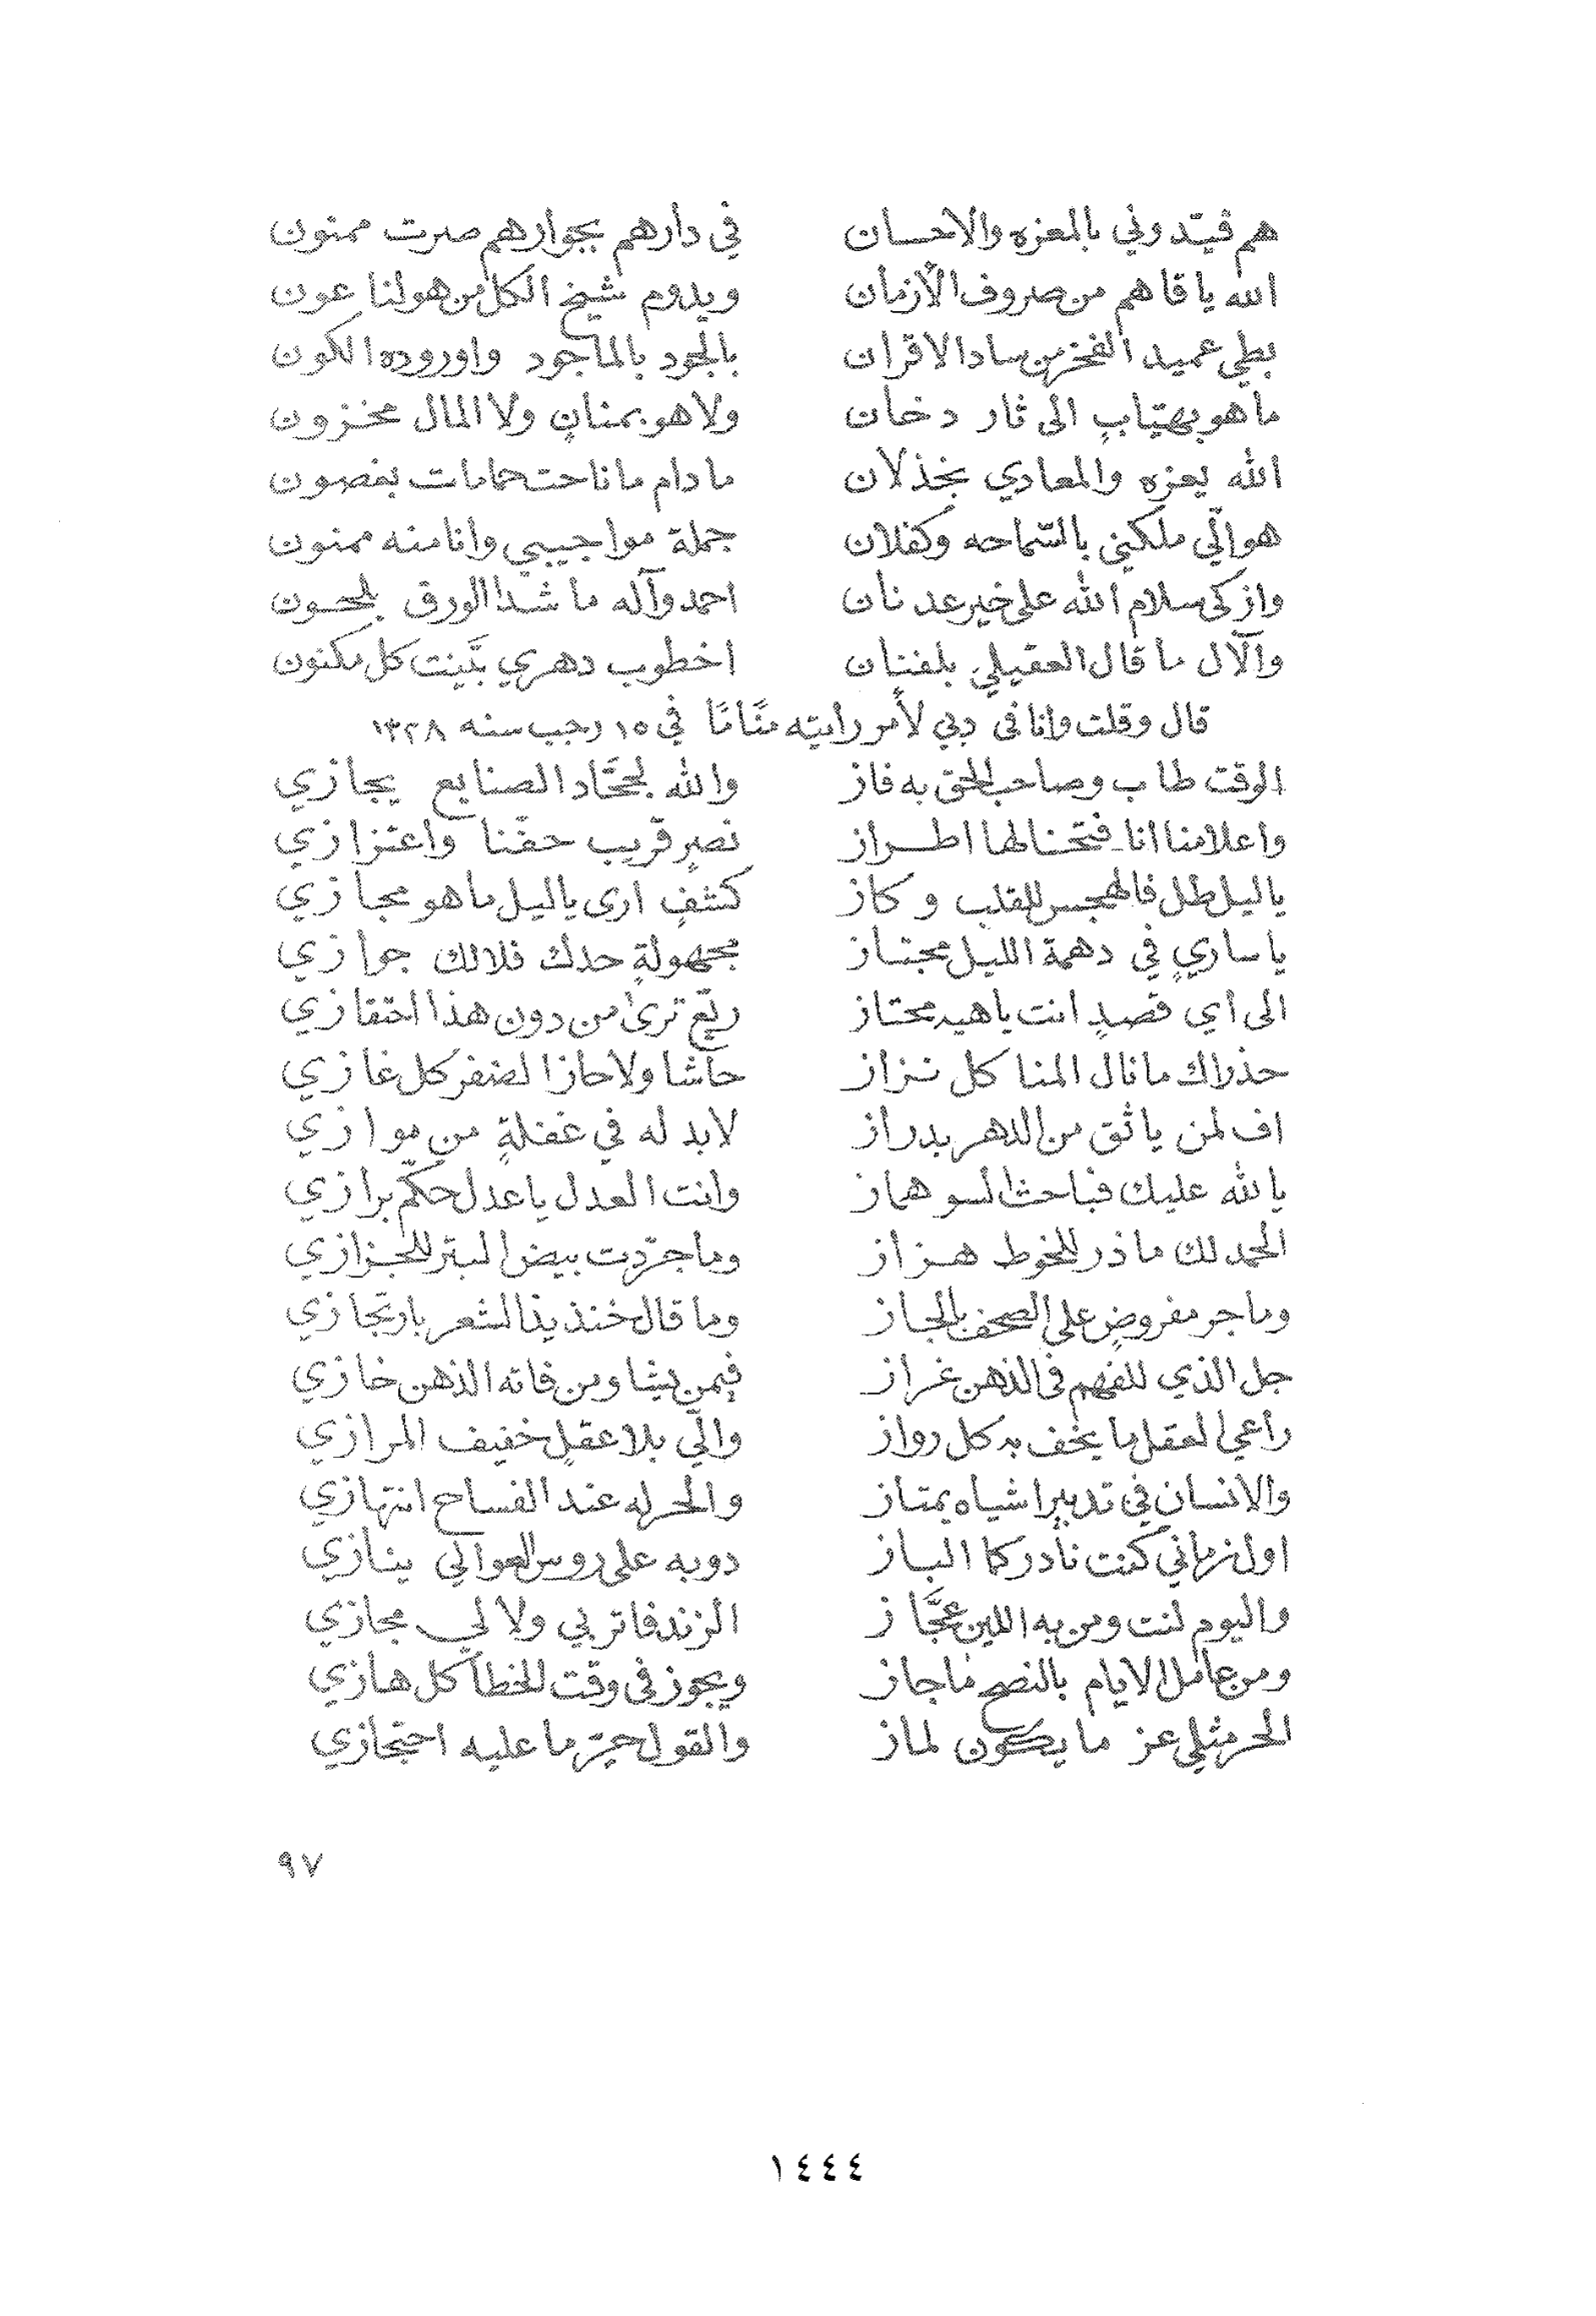 هم قيّدوني بالمعزه والاحسان في دارهم بجوارهم صرت ممنون
الله ياقاهم من صروف الأزمان ويدوم شيخ الكل من هو لنا عون
بطي عميد الفخر من ساد الاقران بالجود بالماجود واوروده الكون
ما هو بهيّابٍ الى ثار دخان ولا هو بمنانٍ ولا المال مخزون
الله يعزه والمعادي بخذلان ما دام ما ناحت حمامات بغصون
هو الّي ملكني بالسّماحه وكفلان جملة مواجيبي وانا منه ممنون
وازكى سلام الله على خير عدنان احمد وآله ما شدا الورق بلحون
والآل ما قال العقيلي بلفنان اخطوب دهري بَيّنت كل مكنون
قال وقلت وانا فى دبي لأمر رايته منَامًا في ١٥ رجب سنه ١٣٢٨
الوقت طاب وصاحب الحق به فاز والله لجحّاد الصنايع يجازي
واعلامنا انا فتحنا لها اطراز نصرٍ قريب حقّنا واعتزازي
ياليل طل فالهجس للقلب وكاز كشفٍ ارى ياليل ما هو مجازي
يا ساريٍ في دهمة الليل مجتاز مجهولةٍ حدك فلالك جوازي
الى أي قصدٍ انت ياهيه محتاز ريّع ترى من دون هذا احتقازي
حذراك ما نال المنا كل نزاز حاشا ولا حاز الضفر كل غازي
اف لمن ياثق من الدهر بدراز لابد له في غفلةٍ من موازي
يالله عليك فباحث السو هماز وانت العدل ياعدل حكّم برازي
الحمد لك ما ذر للخوط هزاز وما جرّدت بيض البتر للجزازي
وما جر مفروضٍ على الصحف بالجاز وما قال خنذيذ الشعر بارتجازي
جل الذي للفهم فى الذهن غراز فيمن يشا ومن فاته الذهن خازي
راعي العقل ما يخف به كل رواز والّي بلا عقلٍ خفيف المرازي
والانسان في تدبير اشياه يمتاز والحر له عند الفساح انتهازي
اول زماني كنت نادر كما الباز دوبه على روس العوالي ينازي
واليوم لنت ومن به اللين عجّاز الزند فاتر بي ولا لي مجازي
ومن عامل الايام بالنصح ما جاز ويجوز فى وقت الخطا كل هازي
الحر مثلي عز ما يكون لماز والقول حرّ ما عليه احتجازي
٩٧
١٤٤٤